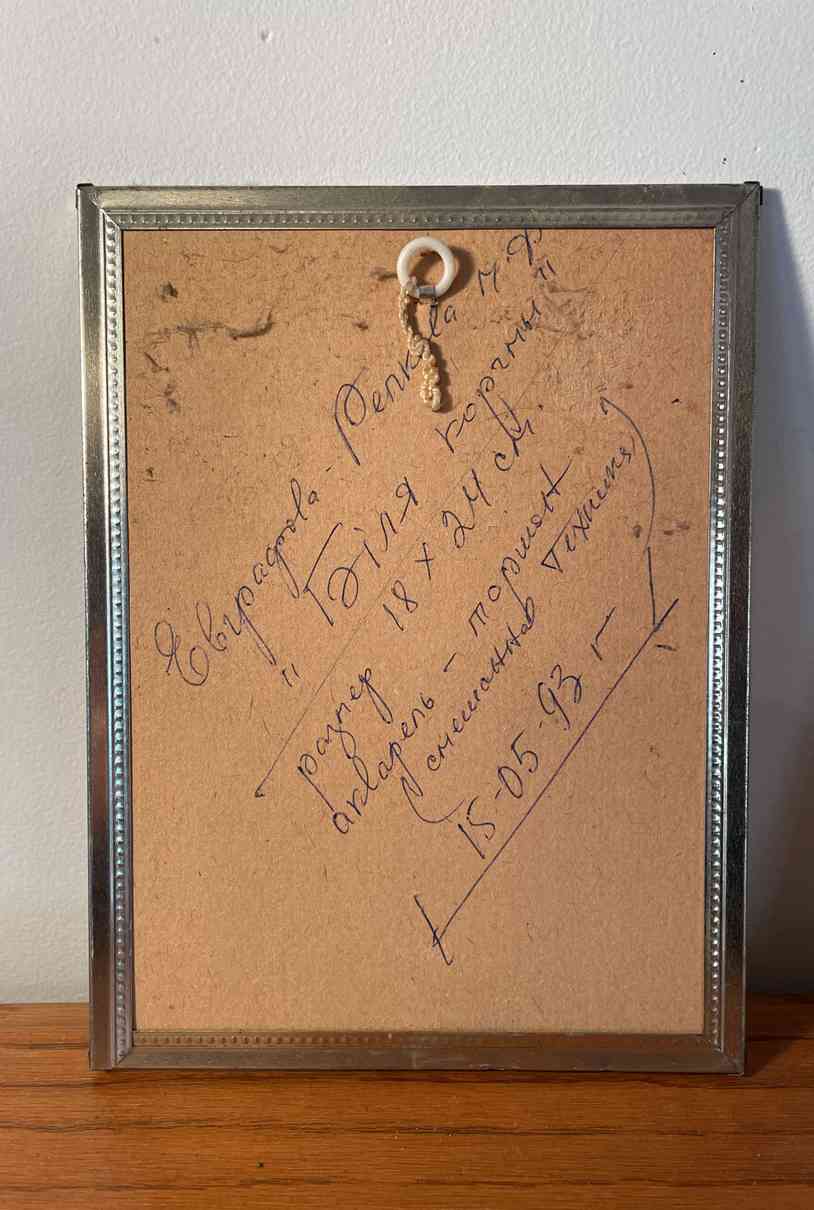 Евграфова - Репк ва М.Ф.
"Біля корчмы"
размер 18 x 24 см.
акварель - торшон
(смешанная техника)
15-05-93 г